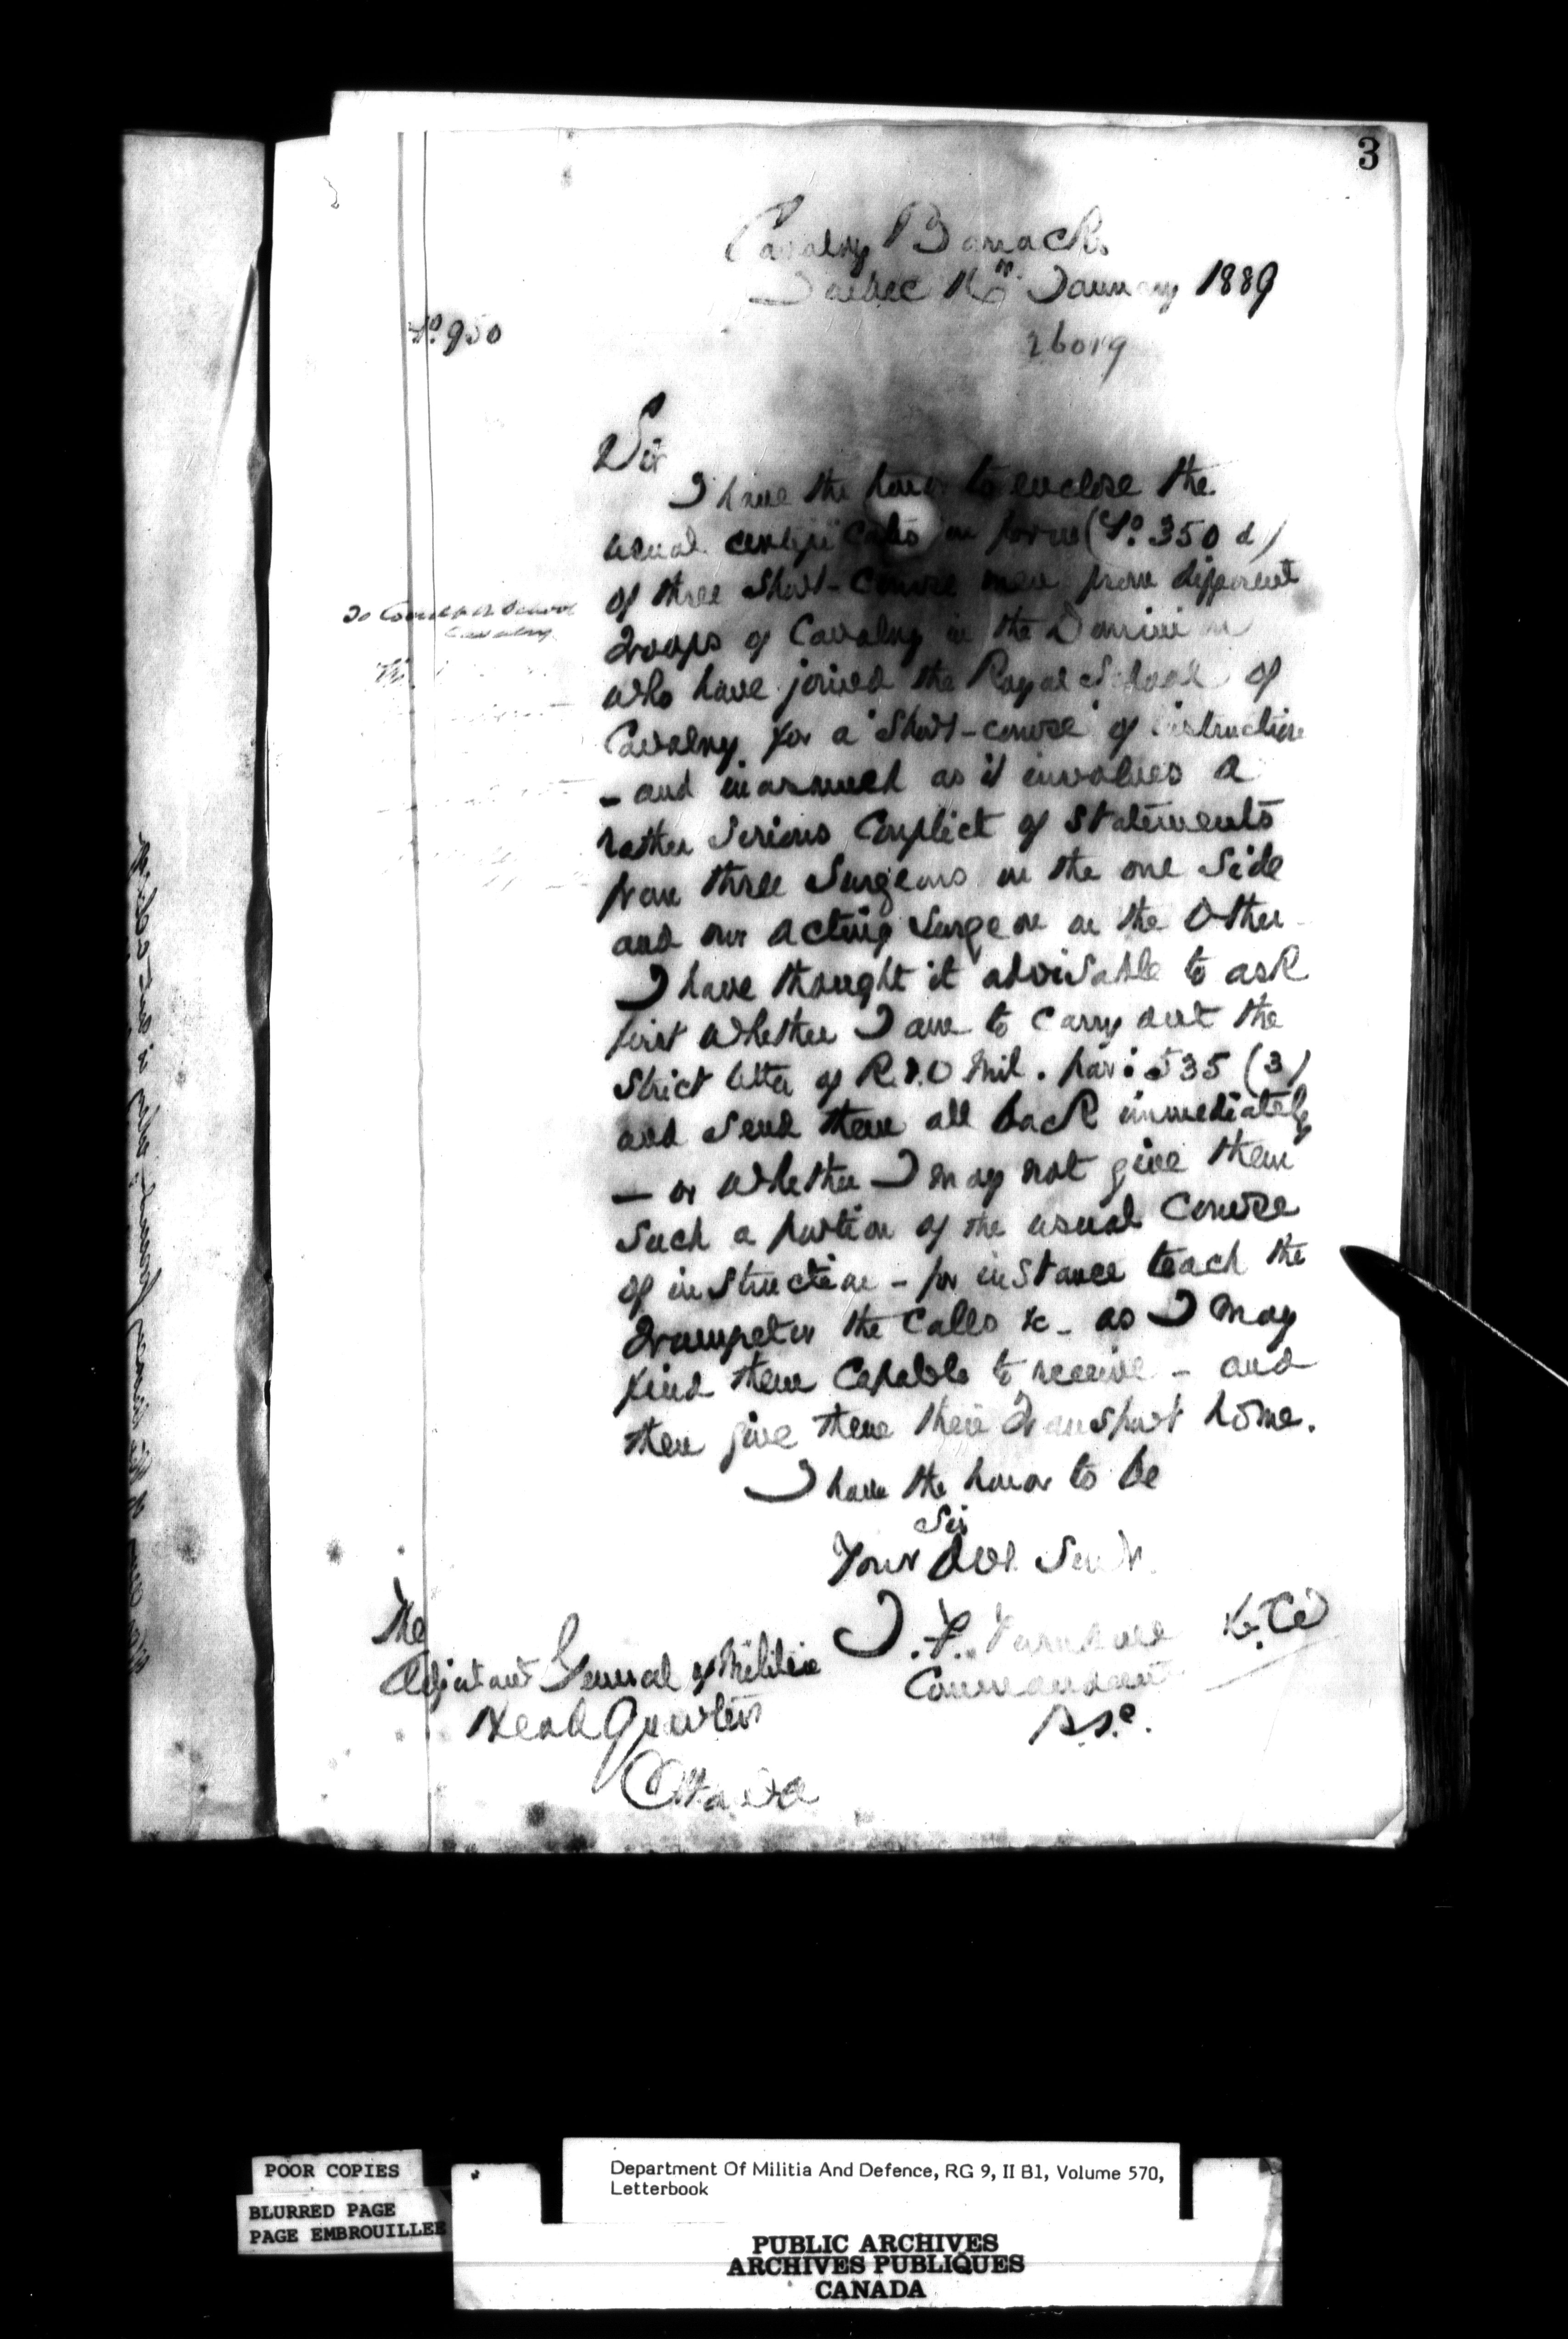 3
Cavalry Barracks
Quebec 16th January 1889
No. 950
26019
Sir
I have the honor to enclose the
usual certificates on form (No. 350 d)
of three Short-Course men from different
Troops of Cavalry in the Dominion
To Comdt School
Cavalry
who have joined the Royal School of
Cavalry for a "Short-course" of instruction
- and inasmuch as it involves a
rather serious Conflict of Statements
from three Surgeons on the one Side
and our acting Surgeon on the Other
I have thought it advisable to ask
first whether I am to carry out the
Strict letter of R. & O Mil. par: 535 (3)
and send them all back immediately
— or whether I may not give them
Such a portion of the usual Course
of instruction - for instance teach the
Trumpeter the Calls &c - as I may
find them Capable to receive - and
then give them their Transport home.
I have the honor to be
Sir
Your Obt. Servt.
J. F. Turnbull Lt. Col
Commandant
R.S.C.
The
Adjutant General of Militia
Head Quarters
Ottawa
POOR COPIES
BLURRED PAGE
PAGE EMBROUILLEE
Department Of Militia And Defence, RG 9, II B1, Volume 570,
Letterbook
PUBLIC ARCHIVES
ARCHIVES PUBLIQUES
CANADA